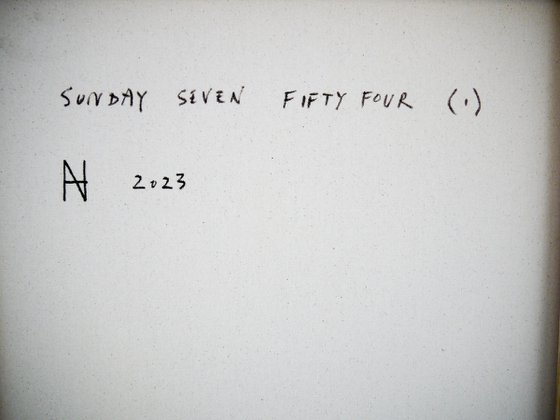 SUNDAY SEVEN FIFTY FOUR (1)
N 2023